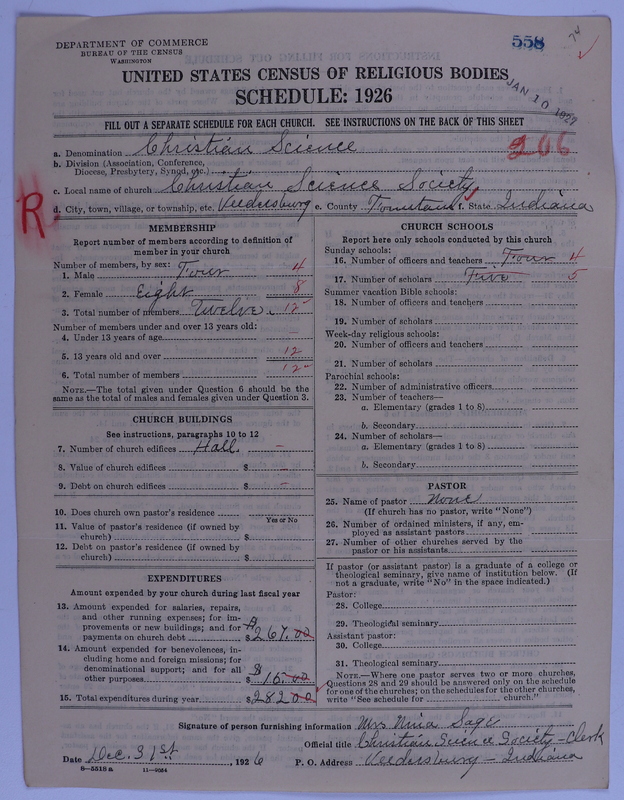 DEPARTMENT OF COMMERCE
BUREAU OF THE CENSUS
WASHINGTON
558
74
UNITED STATES CENSUS OF RELIGIOUS BODIES
SCHEDULE: 1926
JAN 10 1927
FILL OUT A SEPARATE SCHEDULE FOR EACH CHURCH. SEE INSTRUCTIONS ON THE BACK OF THIS SHEET
a. Denomination Christian Science 206
b. Division (Association, Conference,
Diocese, Presbytery, Synod, etc.)
c. Local name of church Christian Science Society
R d. City, town, village, or township, etc. Veedersburg e. County Fountain f. State Indiana
MEMBERSHIP
Report number of members according to definition of
member in your church
Number of members, by sex:
1. Male Four 4
2. Female Eight 8
3. Total number of members Twelve. 12
Number of members under and over 13 years old:
4. Under 13 years of age –
5. 13 years old and over 12
6. Total number of members 12
NOTE.—The total given under Question 6 should be the
same as the total of males and females given under Question 3.
CHURCH BUILDINGS
See instructions, paragraphs 10 to 12
7. Number of church edifices Hall –
8. Value of church edifices $ –
9. Debt on church edifices $ –
10. Does church own pastor's residence
Yes or No
11. Value of pastor's residence (if owned by
church) $
12. Debt on pastor's residence (if owned by
church) $
EXPENDITURES
Amount expended by your church during last fiscal year
13. Amount expended for salaries, repairs,
and other running expenses; for im-
provements or new buildings; and for
payments on church debt $ 267.00
14. Amount expended for benevolences, in-
cluding home and foreign missions; for
denominational support; and for all $
other purposes $ 15.00
15. Total expenditures during year $ 282.00
CHURCH SCHOOLS
Report here only schools conducted by this church
Sunday schools:
16. Number of officers and teachers Four 4
17. Number of scholars Five 5
Summer vacation Bible schools:
18. Number of officers and teachers
19. Number of scholars
Week-day religious schools:
20. Number of officers and teachers
21. Number of scholars
Parochial schools:
22. Number of administrative officers
23. Number of teachers—
a. Elementary (grades 1 to 8)
b. Secondary
24. Number of scholars—
a. Elementary (grades 1 to 8)
b. Secondary
PASTOR
25. Name of pastor None
(If church has no pastor, write "None")
26. Number of ordained ministers, if any, em-
ployed as assistant pastors
27. Number of other churches served by the
pastor or his assistants
If pastor (or assistant pastor) is a graduate of a college or
theological seminary, give name of institution below. (If
not a graduate, write "No" in the space indicated.)
Pastor:
28. College
29. Theological seminary
Assistant pastor:
30. College
31. Theological seminary
NOTE.—Where one pastor serves two or more churches,
Questions 28 and 29 should be answered only on the schedule
for one of the churches; on the schedules for the other churches,
write "See schedule for church."
Signature of person furnishing information Mrs Nina Sage
Official title Christian Science Society – Clerk
Date Dec. 31st, 1926 P. O. Address Veedersburg – Indiana
8—5518 a 11—9024